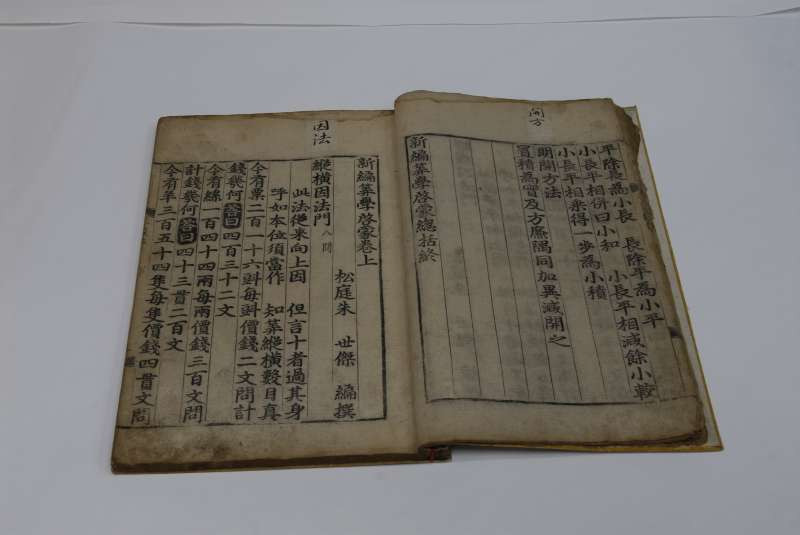 開方
平除長爲小長　長除平爲小平
小長平相併曰小和　小長平相減餘小較
小長平相乘得一步爲小積
明開方法
置積爲實及方廉隅同加異減開之
新編筭學啓蒙總括終
因法
新編筭學啓蒙卷上
松庭朱　世傑　編撰
縱橫因法門 八問
此法從來向上因　但言十者過其身
呼如本位須當作　知筭縱橫數目真
今有粟二百一十六斛每斛價錢二文問計
錢幾何答曰四百三十二文
今有絲一百四十四兩每兩價錢三百文問
計錢幾何答曰四十三貫二百文
今有羊三百五十四隻每隻價錢四貫文問